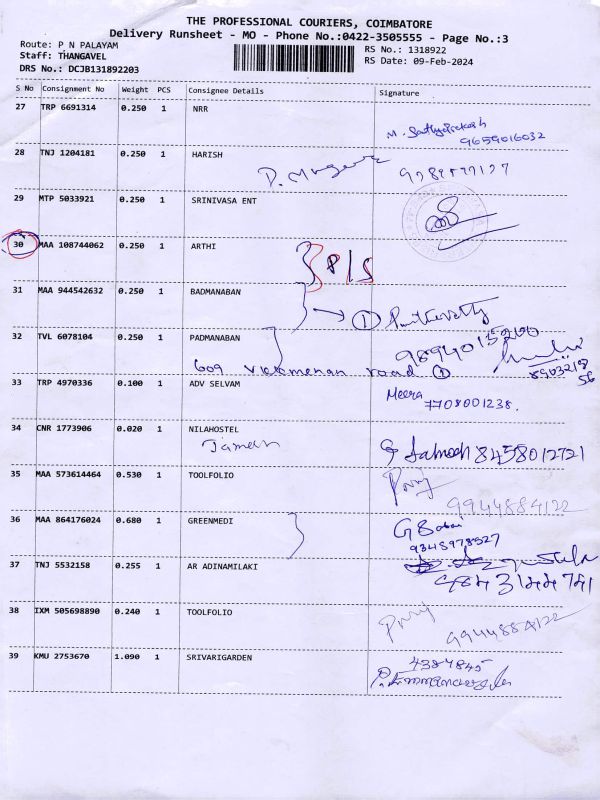 THE PROFESSIONAL COURIERS, COIMBATORE
Delivery Runsheet - MO - Phone No.:0422-3505555 - Page No.:3
Route: P N PALAYAM
RS No.: 1318922
Staff: THANGAVEL
RS Date: 09-Feb-2024
DRS No.: DCJB131892203
S No Consignment No Weight PCS Consignee Details Signature
27 TRP 6691314 0.250 1 NRR
9659016032
28 TNJ 1204181 0.250 1 HARISH
29 MTP 5033921 0.250 1 SRINIVASA ENT
30 MAA 108744062 0.250 1 ARTHI
P/S
31 MAA 944542632 0.250 1 BADMANABAN
1
32 TVL 6078104 0.250 1 PADMANABAN
609 road 1
33 TRP 4970336 0.100 1 ADV SELVAM
Meera
7708001238.
34 CNR 1773906 0.020 1 NILAHOSTEL
8458012721
35 MAA 573614464 0.530 1 TOOLFOLIO
9944884122
36 MAA 864176024 0.680 1 GREENMEDI
37 TNJ 5532158 0.255 1 AR ADINAMILAKI
38 IXM 505698890 0.240 1 TOOLFOLIO
9944884122
39 KMU 2753670 1.090 1 SRIVARIGARDEN